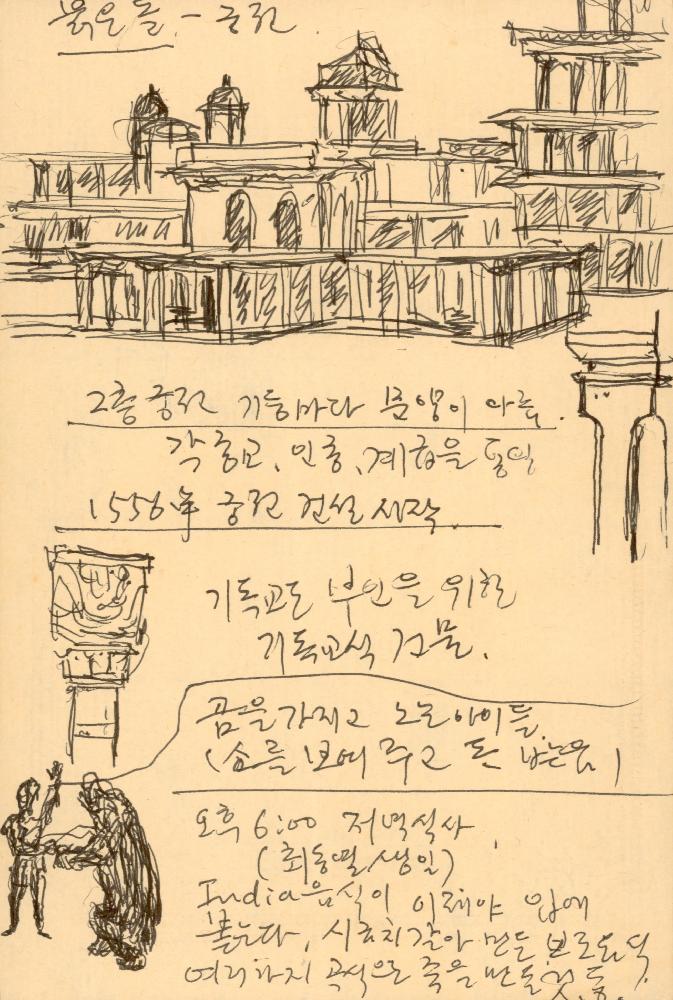 붉은돌 - 궁전.
2층 궁전 기둥마다 문양이 다름.
각 종교, 인종, 계급을 통일
1556年 궁전 건설 시작.
기독교도 부인을 위한
기독교식 건물.
곰을 가지고 노는 아이들
(쇼를 보여 주고 돈 받는음)
오후 6:00 저녁식사.
(최동열 생일)
India음식이 이제야 입에
붙는다. 시금치 갈아 만든
여러가지 곡식으로 죽을 만들